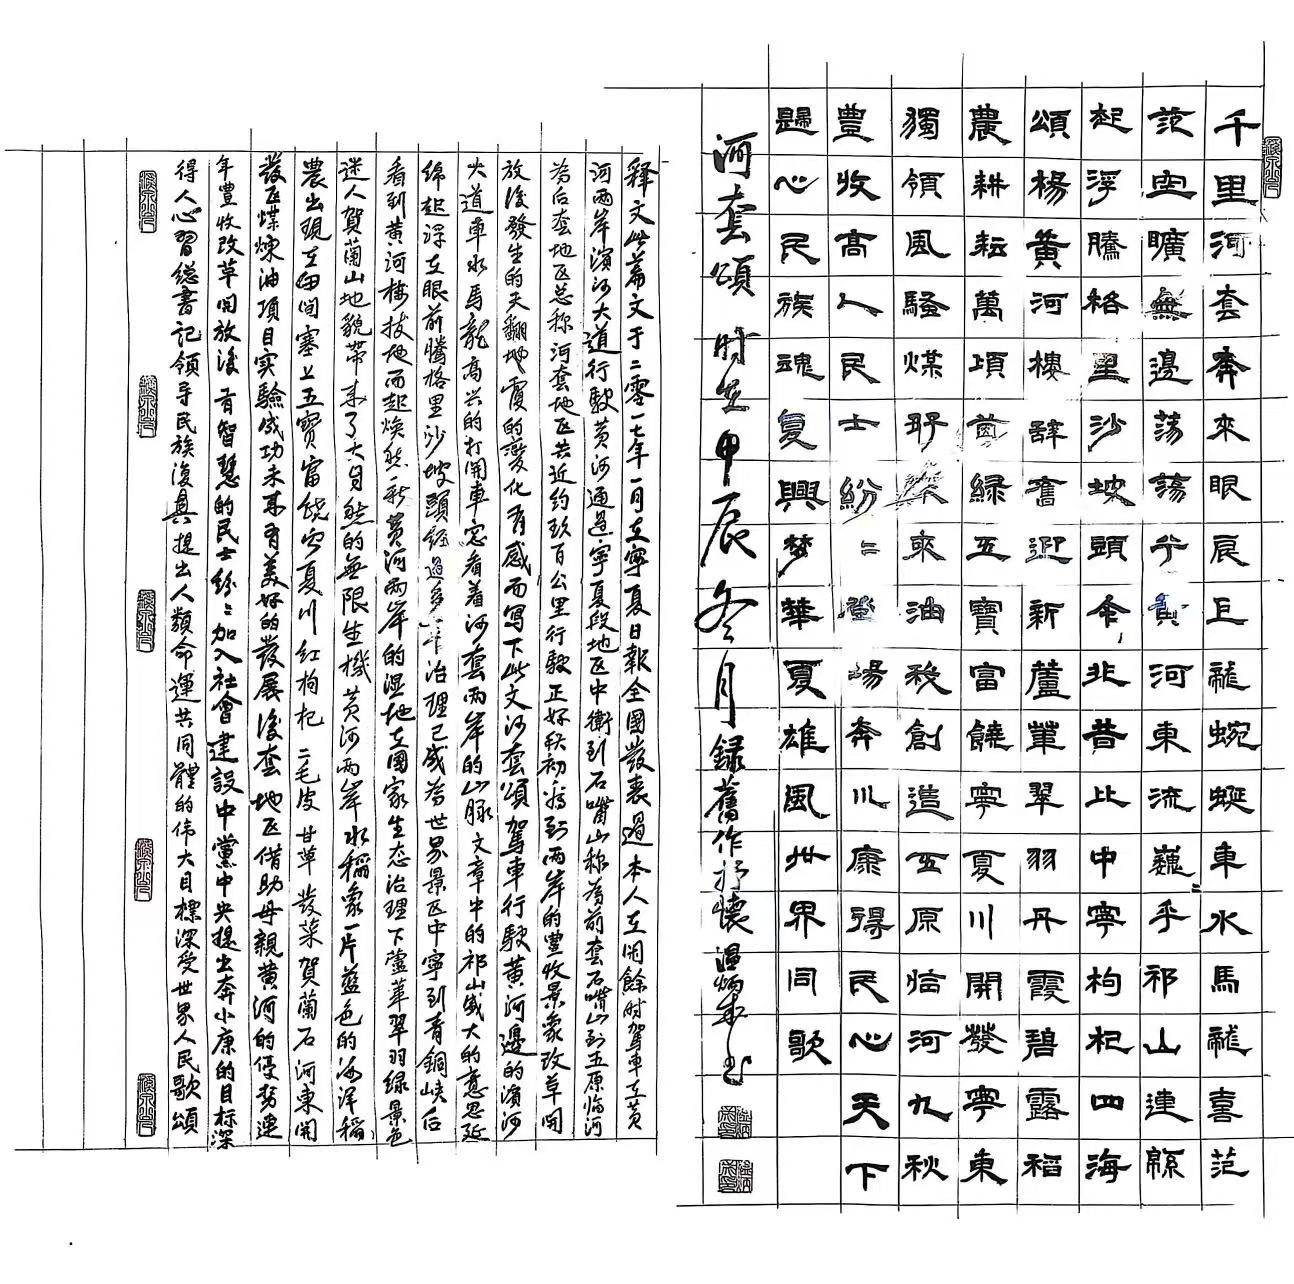 千里河套奔來眼辰巨龍蜿蜒車水馬龍喜范
范空曠無邊蕩蕩兮黃河東流巍〻乎祁山連綿
起浮騰格里沙坡頭今非昔比中寧枸杞四海
頌楊黃河樓辞舊迎新蘆葦翠羽丹霞碧露稻
農耕耘萬頃苗緑五寶富饒寧夏川開發寧東
獨領風騷煤来油創造五原臨河九秋
豐收高人民士紛〻登場奔小康得民心天下
歸心民族魂复興梦華夏雄風世界同歌
河套頌 时在甲辰冬月録舊作抒懷 温炳书
释文此篇文于二零一七年一月在寧夏日報全國發表過本人在閑餘时駕車在黄
河兩岸濱河大道行駛黄河通過寧夏段地区中衛到石嘴山称為前套石嘴山到五原临河
為后套地区总称河套地区共近约玖百公里行駛正好秋初看到兩岸的豐收景象改革開
放後發生的天翻地覆的變化有感而寫下此文河套頌駕車行駛黄河邊的濱河
大道車水馬龍高兴的打開車窓看着河套兩岸的山脉文章中的祁山盛大的意思延
綿起浮在眼前騰格里沙坡頭經過多年治理已成為世界景区中寧到青銅峡后
看到黄河樓拔地而起焕然一新黄河兩岸的湿地在國家生态治理下蘆葦翠羽绿景色
迷人賀蘭山地貌带来了大自然的無限生機黄河兩岸水稻象一片蓝色的海洋稻
農出現在田间塞上五寶富饒寧夏川红枸杞二毛皮甘草發菜賀蘭石河東開
發区煤煉油項目实驗成功未来有美好的發展後套地区借助母親黄河的優势連
年豐收改革開放後有智慧的民士紛〻加入社會建設中黨中央提出奔小康的目标深
得人心習總書记領导民族復興提出人類命運共同體的伟大目標深受世界人民歌頌